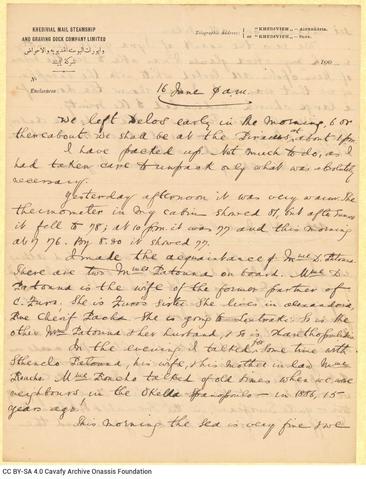 KHEDIVIAL MAIL STEAMSHIP
AND GRAVING DOCK COMPANY LIMITED
Telegraphic Address: { "KHEDIVIEH" — Alexandria.
or "KHEDIVIEH" — Suez.
190
No
Enclosures
16 June 9 am.
We left Delos early in the morning, 6 or
thereabout. We shall be at the Piraeus at about 1 pm.
I have packed up. Not much to do, as I
had taken care to unpack only what was absolutely
necessary.
Yesterday afternoon it was very warm. The
thermometer in my cabin showed 81, but after
it fell to 78; at 10 pm. it was 77 and this morning
at 7 76. By 8.30 it showed 77.
I made the acquaintance of Mme D.
There are two Mmes on board. Mme D.
is the wife of the former partner of
C. She is sister. She lives in Alexandria,
Rue Cherif Pacha. She is going to So is the
other Mme & her husband, & so is
In the evening I talked for some time with
his wife, & his mother in law Mme
Mme talked of old times when we were
neighbours in the — in 1886, 15
years ago.
This morning the sea is very fine & we
CC BY-SA 4.0 Cavafy Archive Onassis Foundation